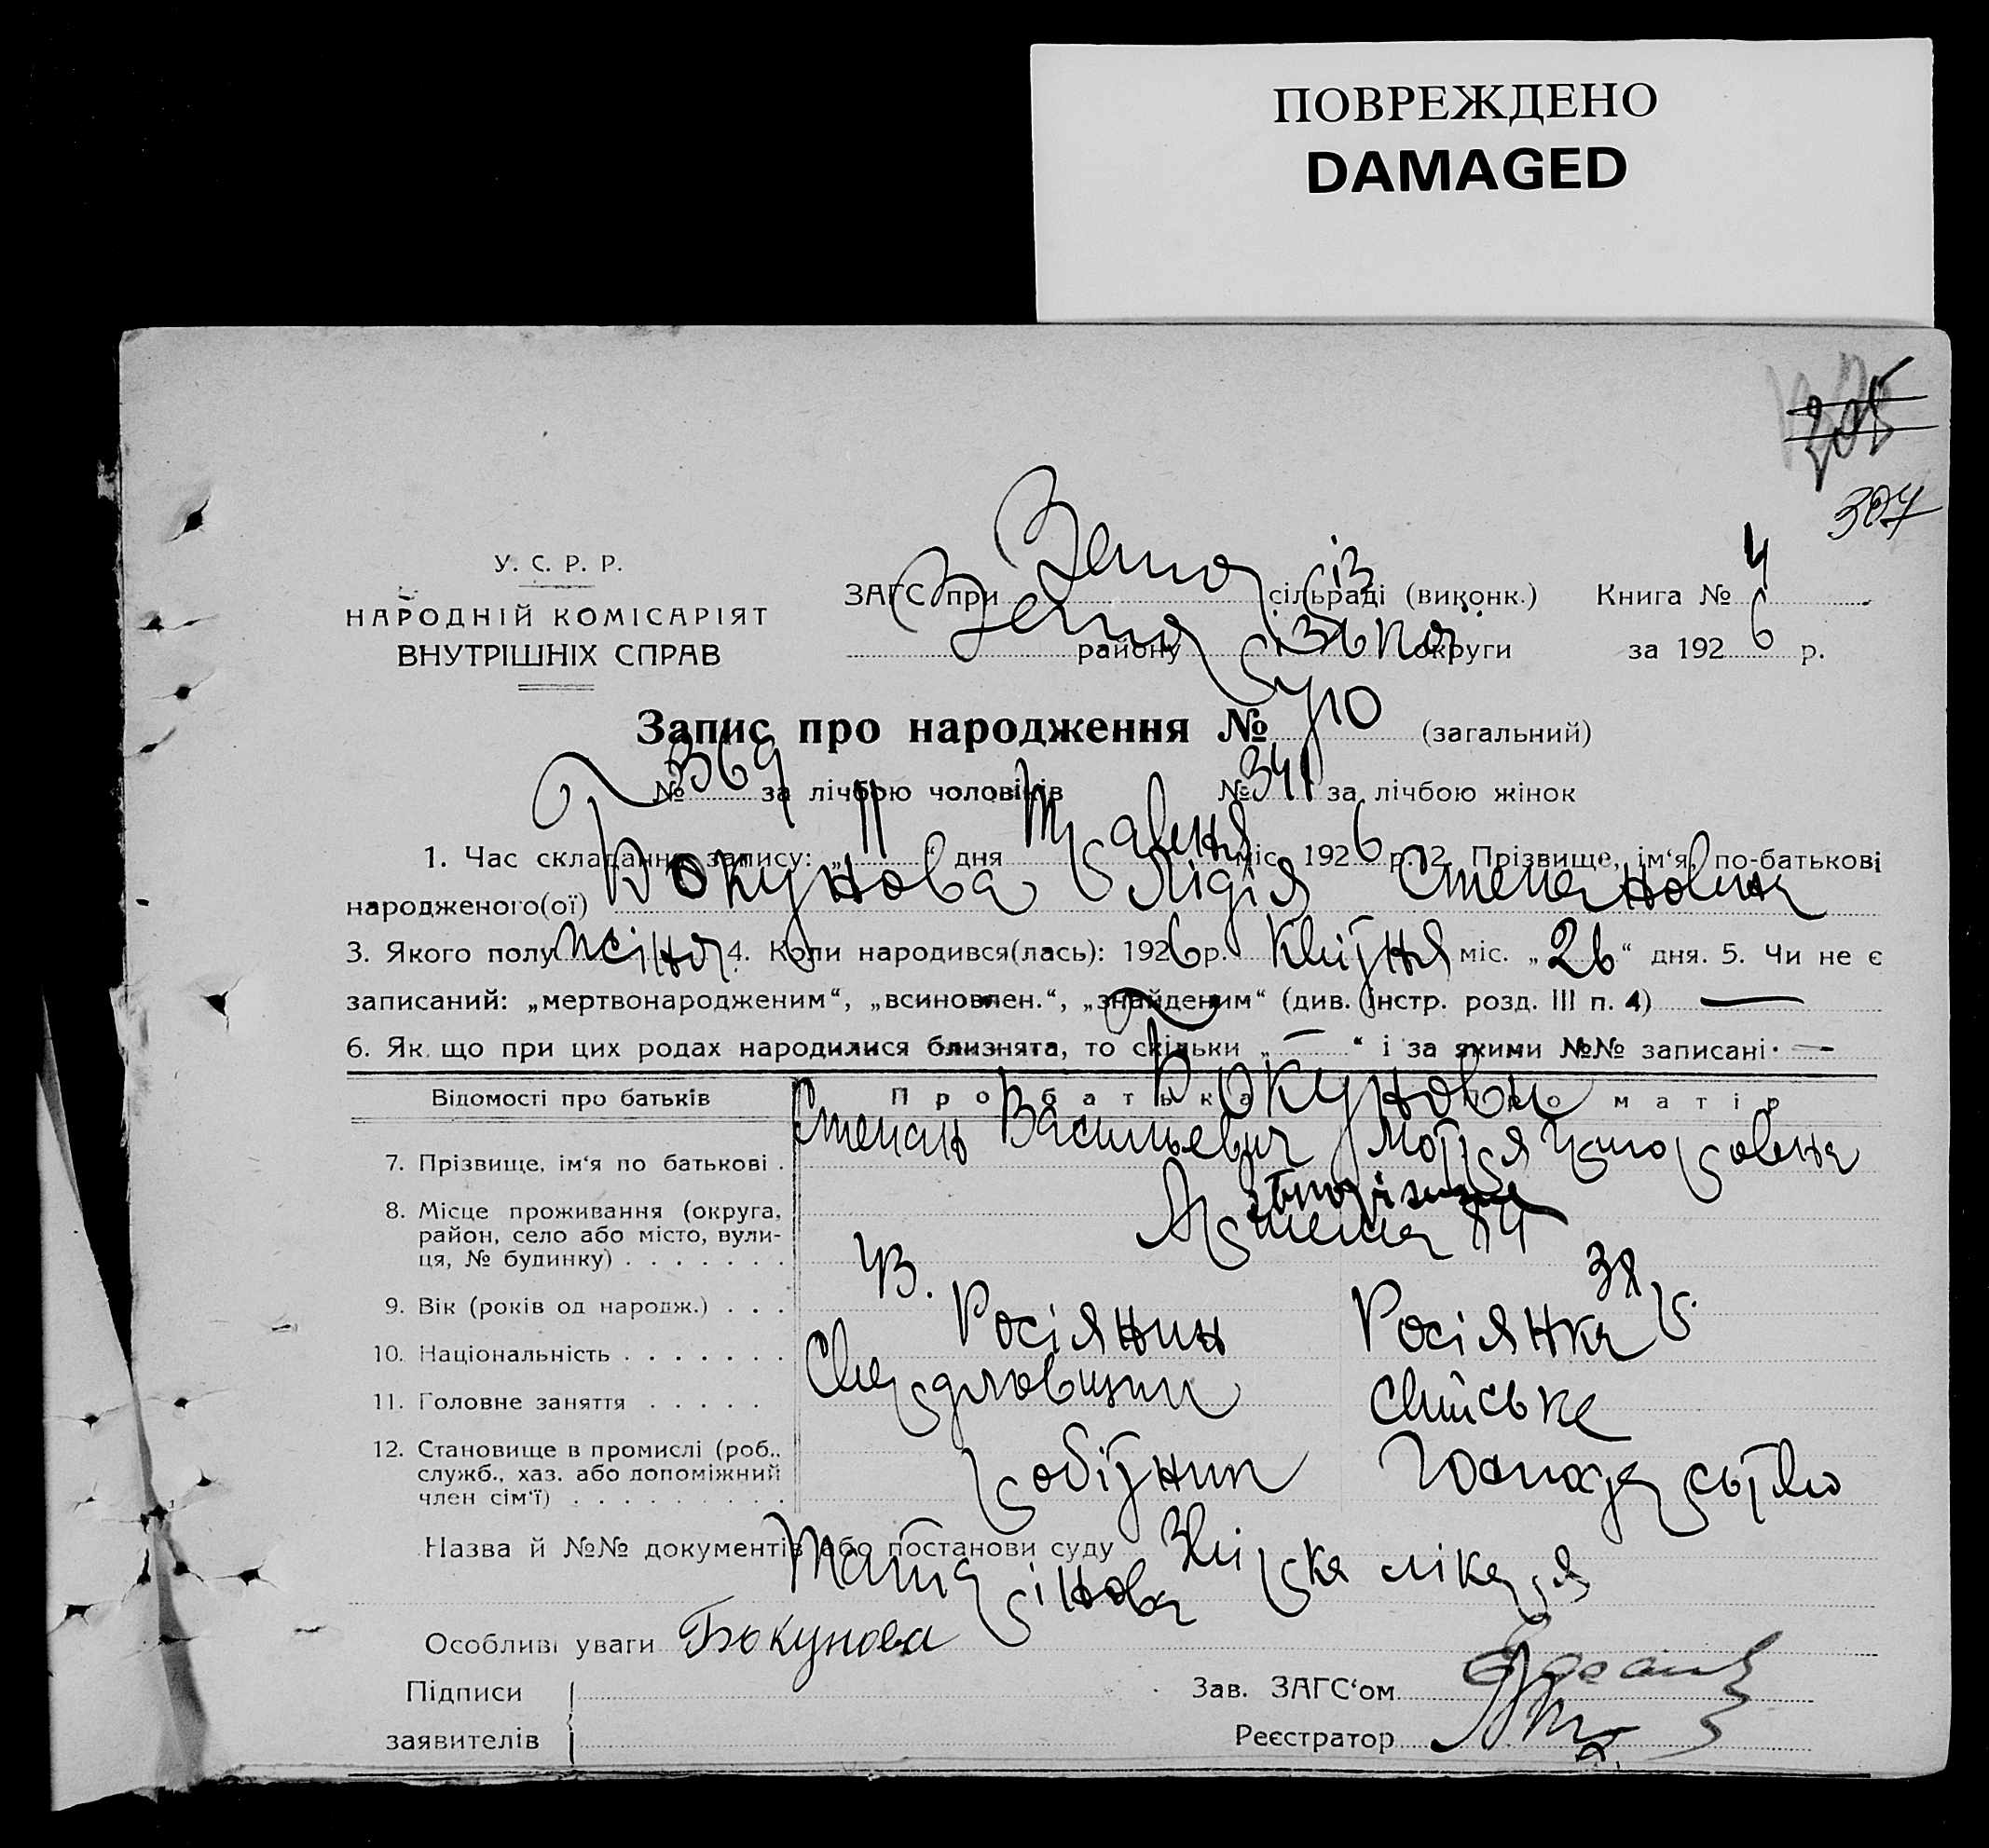 ПОВРЕЖДЕНО
DAMAGED
305
307
У. С. Р. Р.
НАРОДНІЙ КОМІСАРІЯТ
ВНУТРІШНІХ СПРАВ
ЗАГС при сільраді (виконк.) Книга № 4
району округи за 1926 р.
Запис про народження № 710 (загальний)
№ 369 за лічбою чоловіків № 341 за лічбою жінок
1. Час складання запису: „11“ дня Травня міс. 1926 р. 2. Прізвище, ім‘я, по-батькові
народженого(ої) Бокунова Лідія Степановна
3. Якого полу жіноч. 4. Коли народився(лась): 1926 р. квітня міс. „26“ дня. 5. Чи не є
записаний: „мертвонародженим“, „всиновлен.“, „знайденим“ (див. інстр. розд. III п. 4) —
6. Як що при цих родах народилися близнята, то скільки „—“ і за якими №№ записані —
Відомості про батьків Про батька Про матір
Бокунови
7. Прізвище, ім‘я по батькові . Степань Васильевич Мотря
8. Місце проживання (округа,
район, село або місто, вули-
ця, № будинку) . . . . . . . Артема
9. Вік (років од народж.) . . . 43. 38 р.
10. Національність . . . . . . . Росіянин Росіянка
11. Головне заняття . . . . . Свердловщик Хатське
12. Становище в промислі (роб.,
служб., хаз. або допоміжний
член сім‘ї) . . . . . . . . . робітник
Назва й №№ документів або постанови суду лікаря
Особливі уваги Бокунова
Підписи Зав. ЗАГС‘ом
заявителів Реєстратор